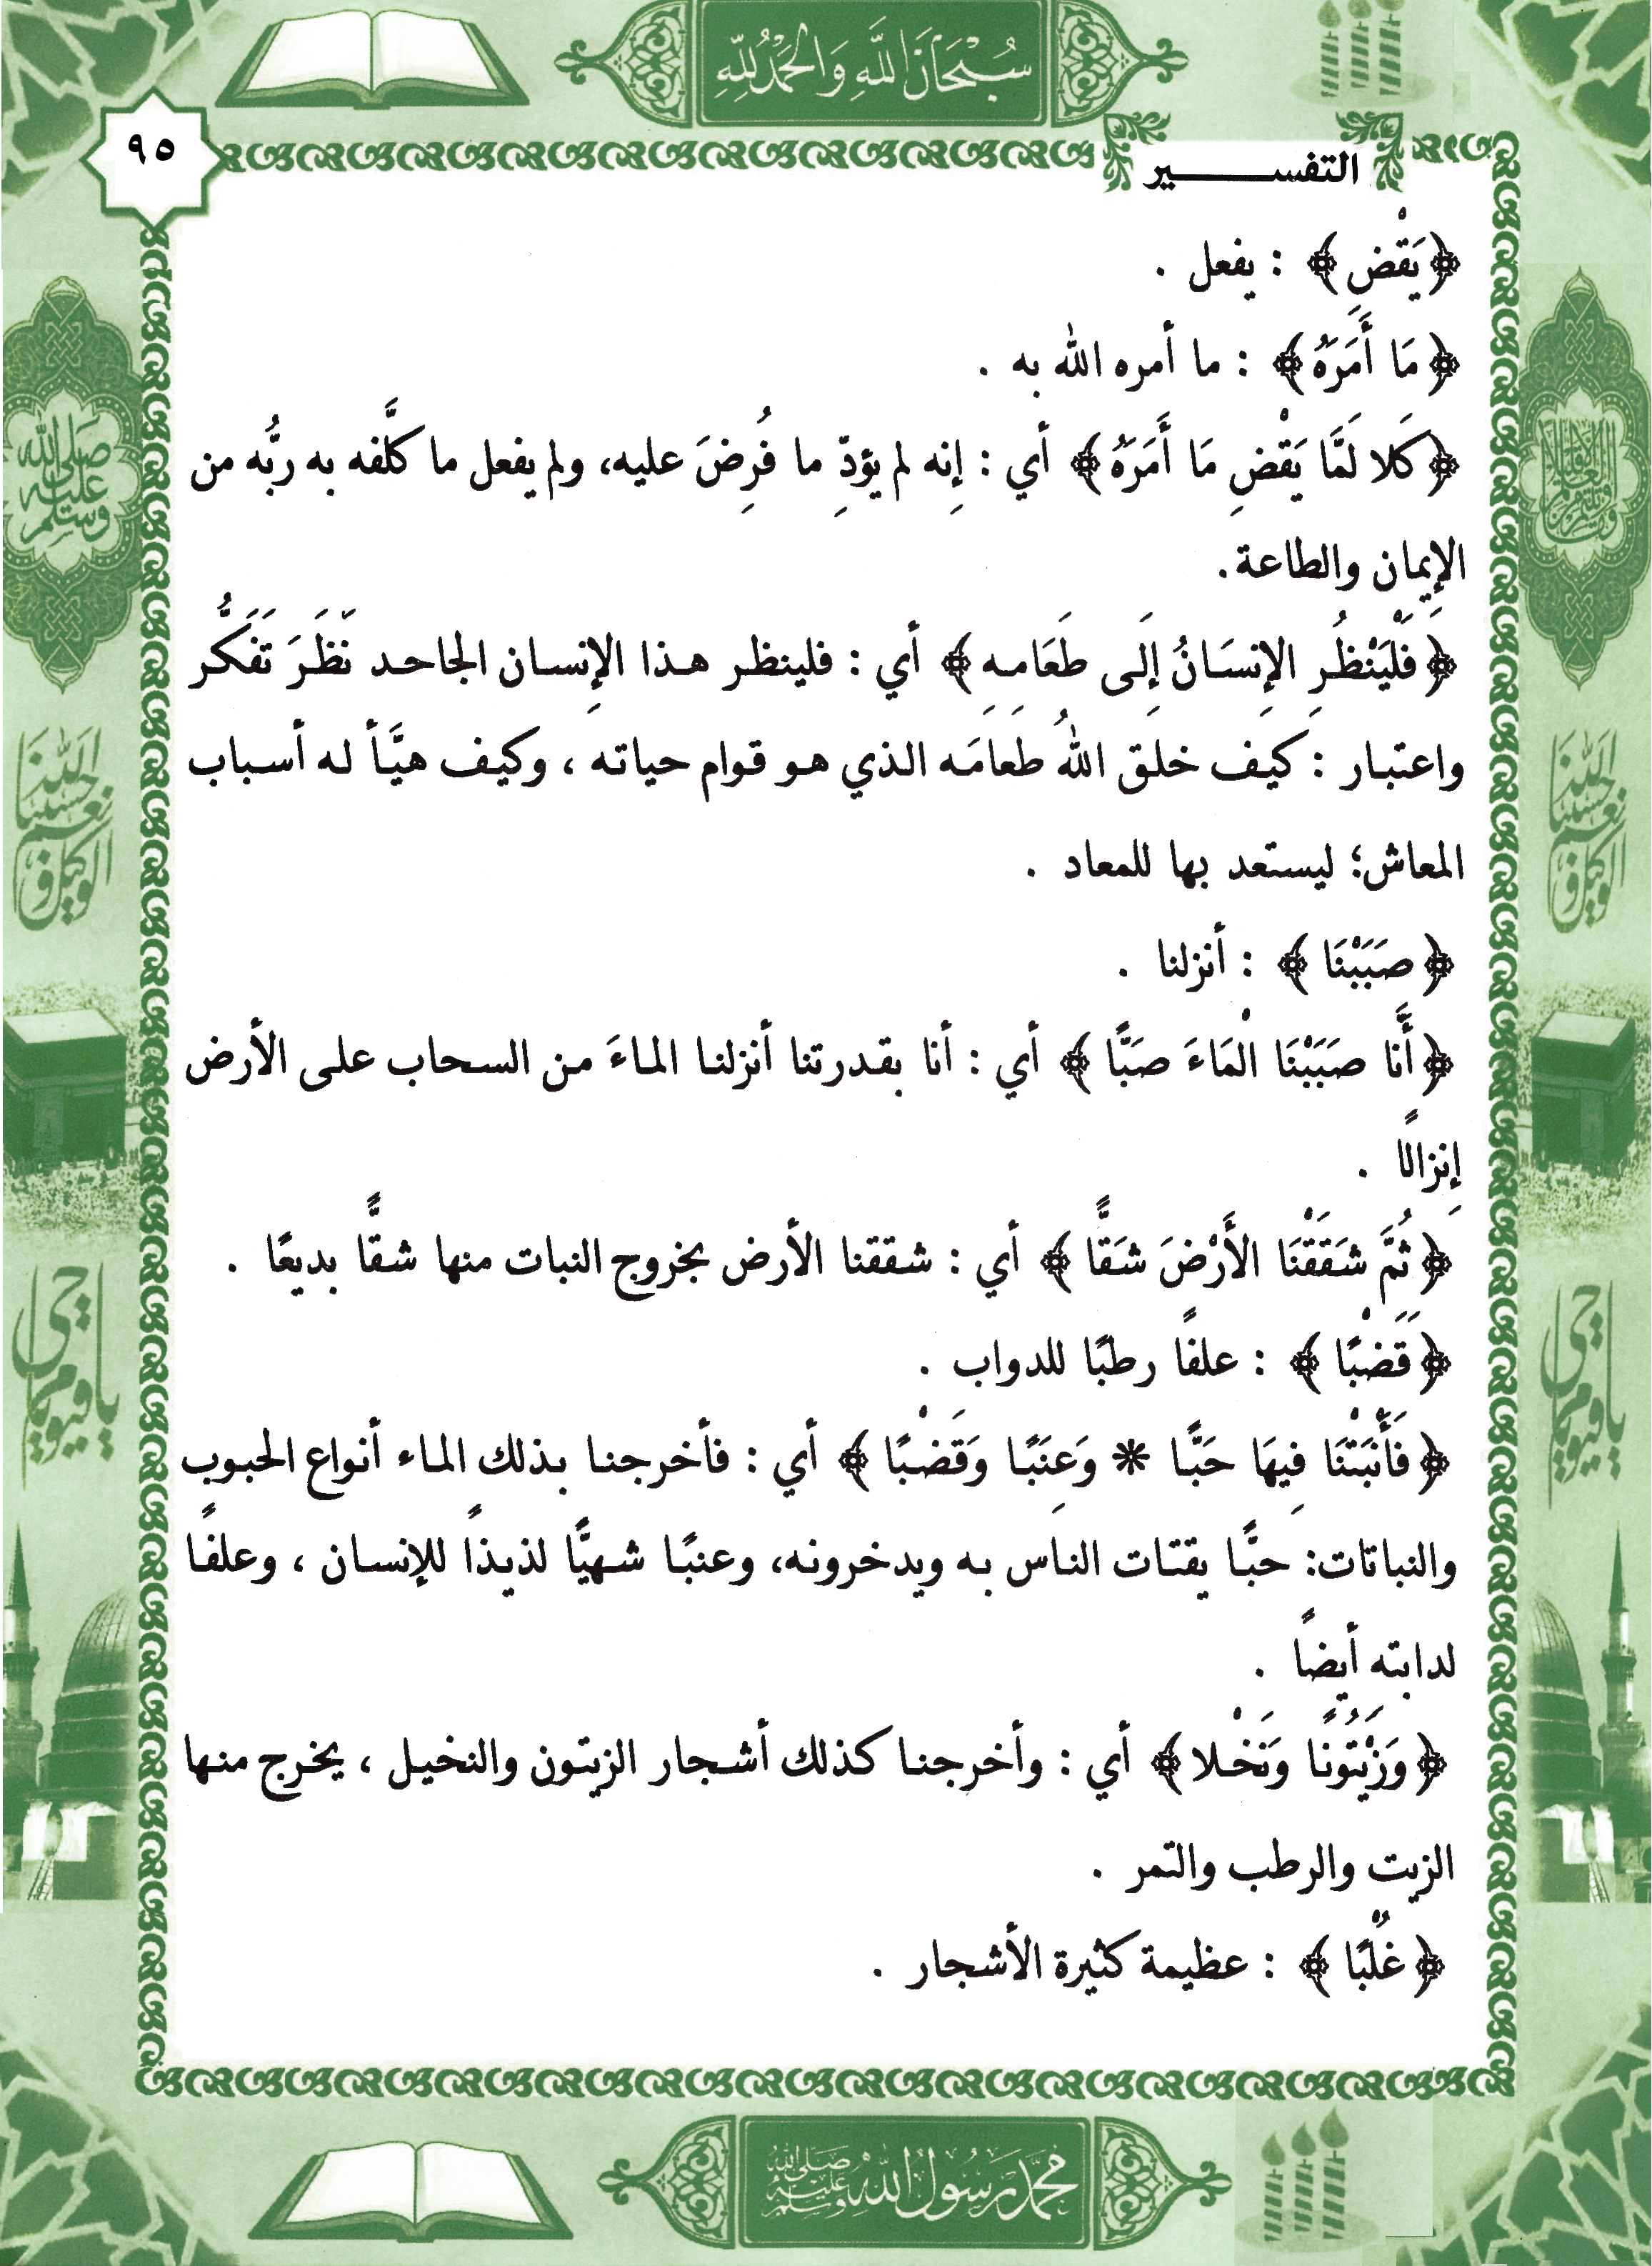 سُبْحَانَ اللَّهِ وَالْحَمْدُ لِلَّهِ
٩٥
التفسـير
﴿يَقْضِ﴾ : يفعل .
﴿مَا أَمَرَهُ﴾ : ما أمره الله به .
﴿كَلا لَمَّا يَقْضِ مَا أَمَرَهُ﴾ أي : إِنه لم يؤدِّ ما فُرِضَ عليه، ولم يفعل ما كلَّفه به ربُّه من
الإِيمان والطاعة.
﴿فَلْيَنْظُرِ الإِنسَانُ إِلَى طَعَامِهِ﴾ أي : فلينظر هذا الإِنسان الجاحد نَظَرَ تَفَكُّر
واعتبار : كيف خلق اللهُ طعامَه الذي هو قوام حياته ، وكيف هيَّأ له أسباب
المعاش؛ ليستعد بها للمعاد .
﴿صَبَبْنَا﴾ : أنزلنا .
﴿أَنَّا صَبَبْنَا الْمَاءَ صَبًّا﴾ أي : أنا بقدرتنا أنزلنا الماءَ من السحاب على الأرض
إِنزالاً .
﴿ثُمَّ شَقَقْنَا الأَرْضَ شَقًّا﴾ أي : شققنا الأرض بخروج النبات منها شقًّا بديعًا .
﴿قَضْبًا﴾ : علفًا رطبًا للدواب .
﴿فَأَنْبَتْنَا فِيهَا حَبًّا * وَعِنَبًا وَقَضْبًا﴾ أي : فأخرجنا بذلك الماء أنواع الحبوب
والنباتات: حبًّا يقتات الناس به ويدخرونه، وعنبًا شهيًّا لذيذاً للإنسان ، وعلفًا
لدابته أيضاً .
﴿وَزَيْتُونًا وَنَخْلا﴾ أي : وأخرجنا كذلك أشجار الزيتون والنخيل ، يخرج منها
الزيت والرطب والتمر .
﴿غُلْبًا﴾ : عظيمة كثيرة الأشجار .
صَلَّى اللَّه عَلَيْهِ وَسَلَّم
اللَّه حَسْبُنَا نِعْمَ الْوَكِيل
اللَّه حَسْبُنَا نِعْمَ الْوَكِيل
يا حي يا قيوم
يا حي يا قيوم
مُحَمَّد رَسُولُ اللَّه صَلَّى اللَّه عَلَيْهِ وَسَلَّم